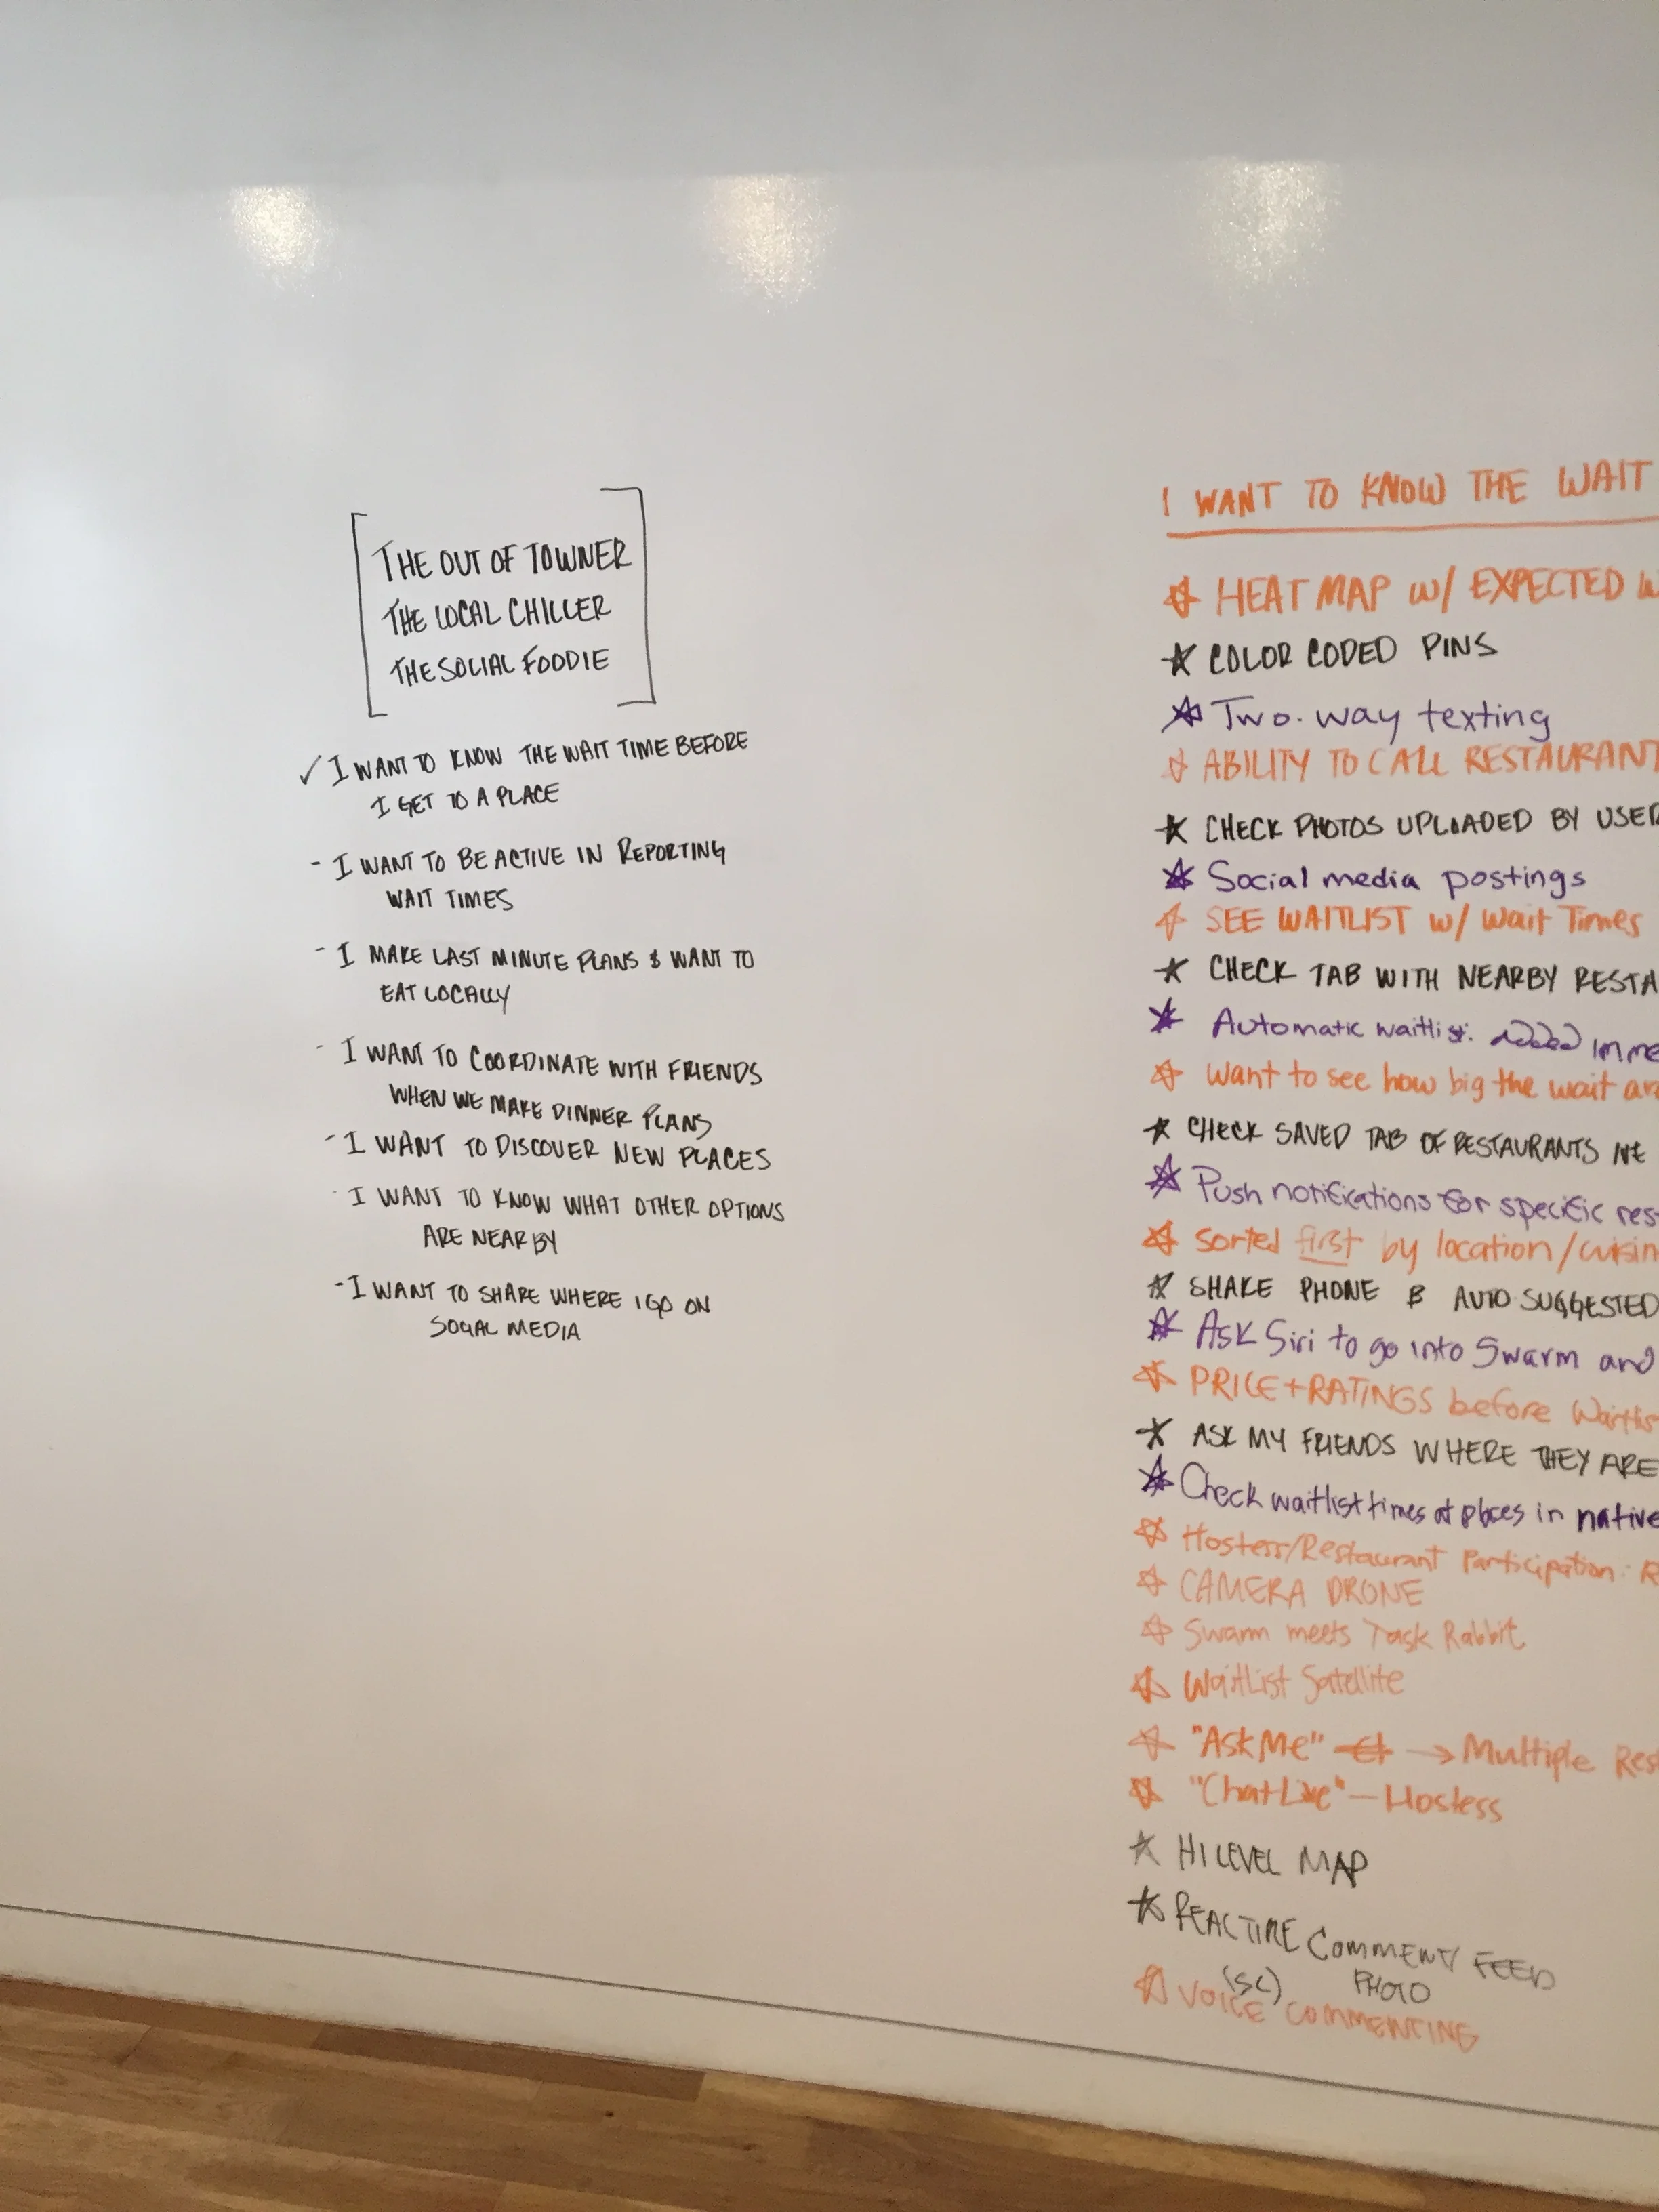 THE OUT OF TOWNER
THE LOCAL CHILLER
THE SOCIAL FOODIE
✓ I WANT TO KNOW THE WAIT TIME BEFORE
I GET TO A PLACE
- I WANT TO BE ACTIVE IN REPORTING
WAIT TIMES
- I MAKE LAST MINUTE PLANS & WANT TO
EAT LOCALLY
- I WANT TO COORDINATE WITH FRIENDS
WHEN WE MAKE DINNER PLANS
- I WANT TO DISCOVER NEW PLACES
- I WANT TO KNOW WHAT OTHER OPTIONS
ARE NEARBY
- I WANT TO SHARE WHERE I GO ON
SOCIAL MEDIA
I WANT TO KNOW THE WAIT
HEAT MAP W/ EXPECTED W
COLOR CODED PINS
Two-way texting
ABILITY TO CALL RESTAURANT
CHECK PHOTOS UPLOADED BY USER
Social media postings
SEE WAITLIST w/ Wait Times
CHECK TAB WITH NEARBY RESTA
Automatic waitlist: added imme
want to see how big the wait ar
CHECK SAVED TAB OF RESTAURANTS IVE
Push notifications for specific res
Sorted first by location/cuisin
SHAKE PHONE & AUTO SUGGESTED
Ask Siri to go into Swarm and
PRICE+RATINGS before Waitlis
ASK MY FRIENDS WHERE THEY ARE
Check waitlist times at places in native
Hostess/Restaurant Participation: R
CAMERA DRONE
Swarm meets Task Rabbit
WaitList Satellite
"Ask Me" → Multiple Res
"Chat Live" — Hostess
HI LEVEL MAP
REALTIME COMMENT/ FEED
(SC) PHOTO
VOICE COMMENTING